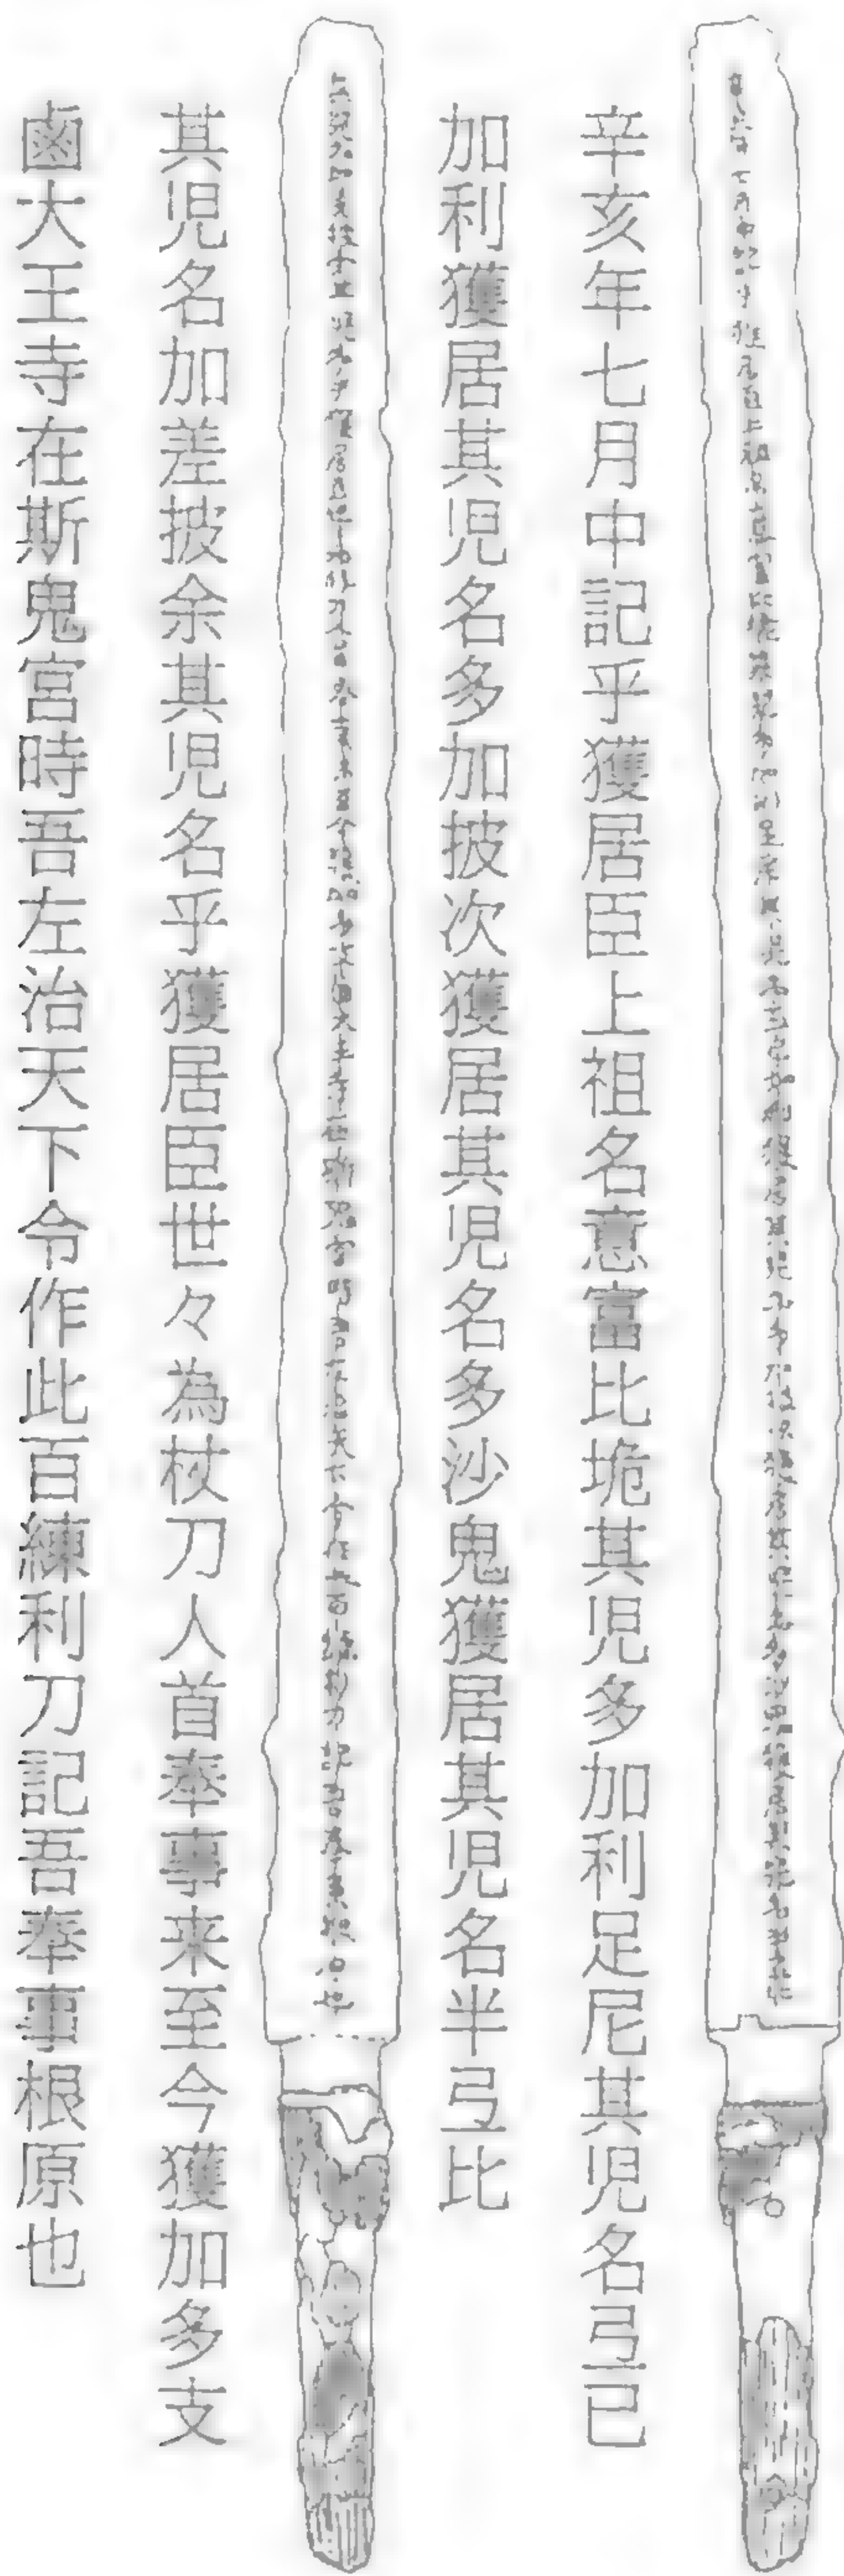 辛亥年七月中記乎獲居臣上祖名意富比垝其児多加利足尼其児名弖已
加利獲居其児名多加披次獲居其児名多沙鬼獲居其児名半弖比
其児名加差披余其児名乎獲居臣世々為杖刀人首奉事来至今獲加多支
鹵大王寺在斯鬼宮時吾左治天下令作此百練利刀記吾奉事根原也